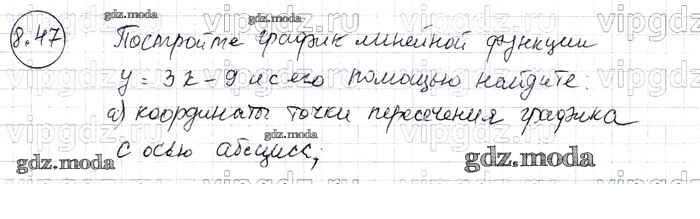 8.47
Постройте график линейной функции
y = 3x - 9 и с его помощью найдите:
а) координаты точки пересечения графика
с осью абсцисс;
gdz.moda
gdz.moda
gdz.moda
gdz.moda
gdz.moda